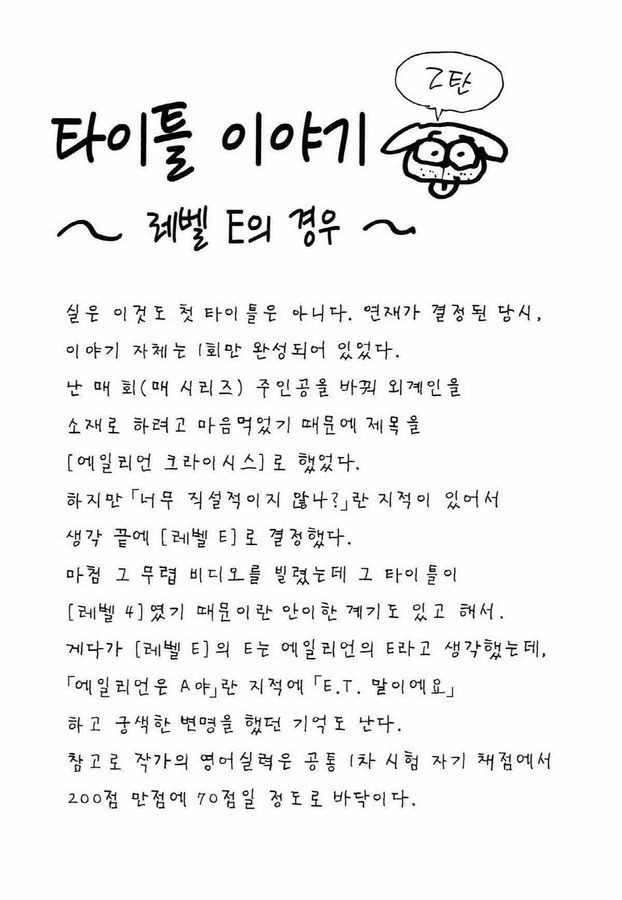 2탄
타이틀 이야기
~ 레벨 E의 경우 ~
실은 이것도 첫 타이틀은 아니다. 연재가 결정된 당시,
이야기 자체는 1회만 완성되어 있었다.
난 매 회(매 시리즈) 주인공을 바꿔 외계인을
소재로 하려고 마음먹었기 때문에 제목을
[에일리언 크라이시스]로 했었다.
하지만 「너무 직설적이지 않나?」란 지적이 있어서
생각 끝에 [레벨 E]로 결정했다.
마침 그 무렵 비디오를 빌렸는데 그 타이틀이
[레벨 4]였기 때문이란 안이한 계기도 있고 해서.
게다가 [레벨 E]의 E는 에일리언의 E라고 생각했는데,
「에일리언은 A야」란 지적에 「E.T. 말이에요」
하고 궁색한 변명을 했던 기억도 난다.
참고로 작가의 영어실력은 공통 1차 시험 자기 채점에서
200점 만점에 70점일 정도로 바닥이다.